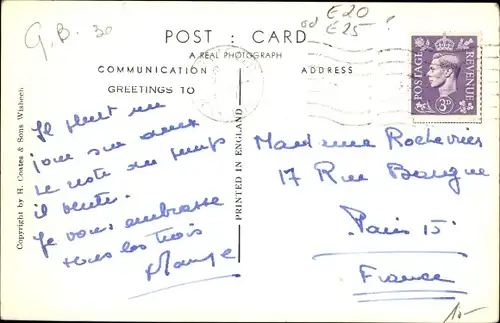 G.B. 30
od E20
E25 ?
POST : CARD
A REAL PHOTOGRAPH
COMMUNICATION
ADDRESS
GREETINGS TO
POSTAGE
REVENUE
3D
Copyright by H. Coates & Sons Wisbech
PRINTED IN ENGLAND
Il pleut un
jour sur deux
Le reste du temps
il vente.
Je vous embrasse
tous les trois
Madame
17 Rue
Paris 15
France
10-